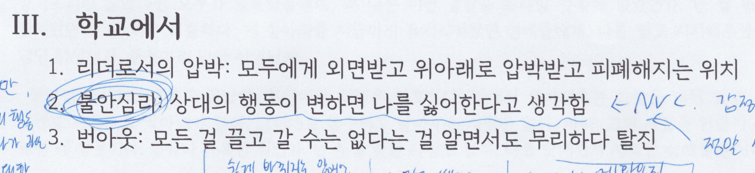 III. 학교에서
1. 리더로서의 압박: 모두에게 외면받고 위아래로 압박받고 피폐해지는 위치
2. 불안심리: 상대의 행동이 변하면 나를 싫어한다고 생각함 ← NVC. 감정
3. 번아웃: 모든 걸 끌고 갈 수는 없다는 걸 알면서도 무리하다 탈진
정말